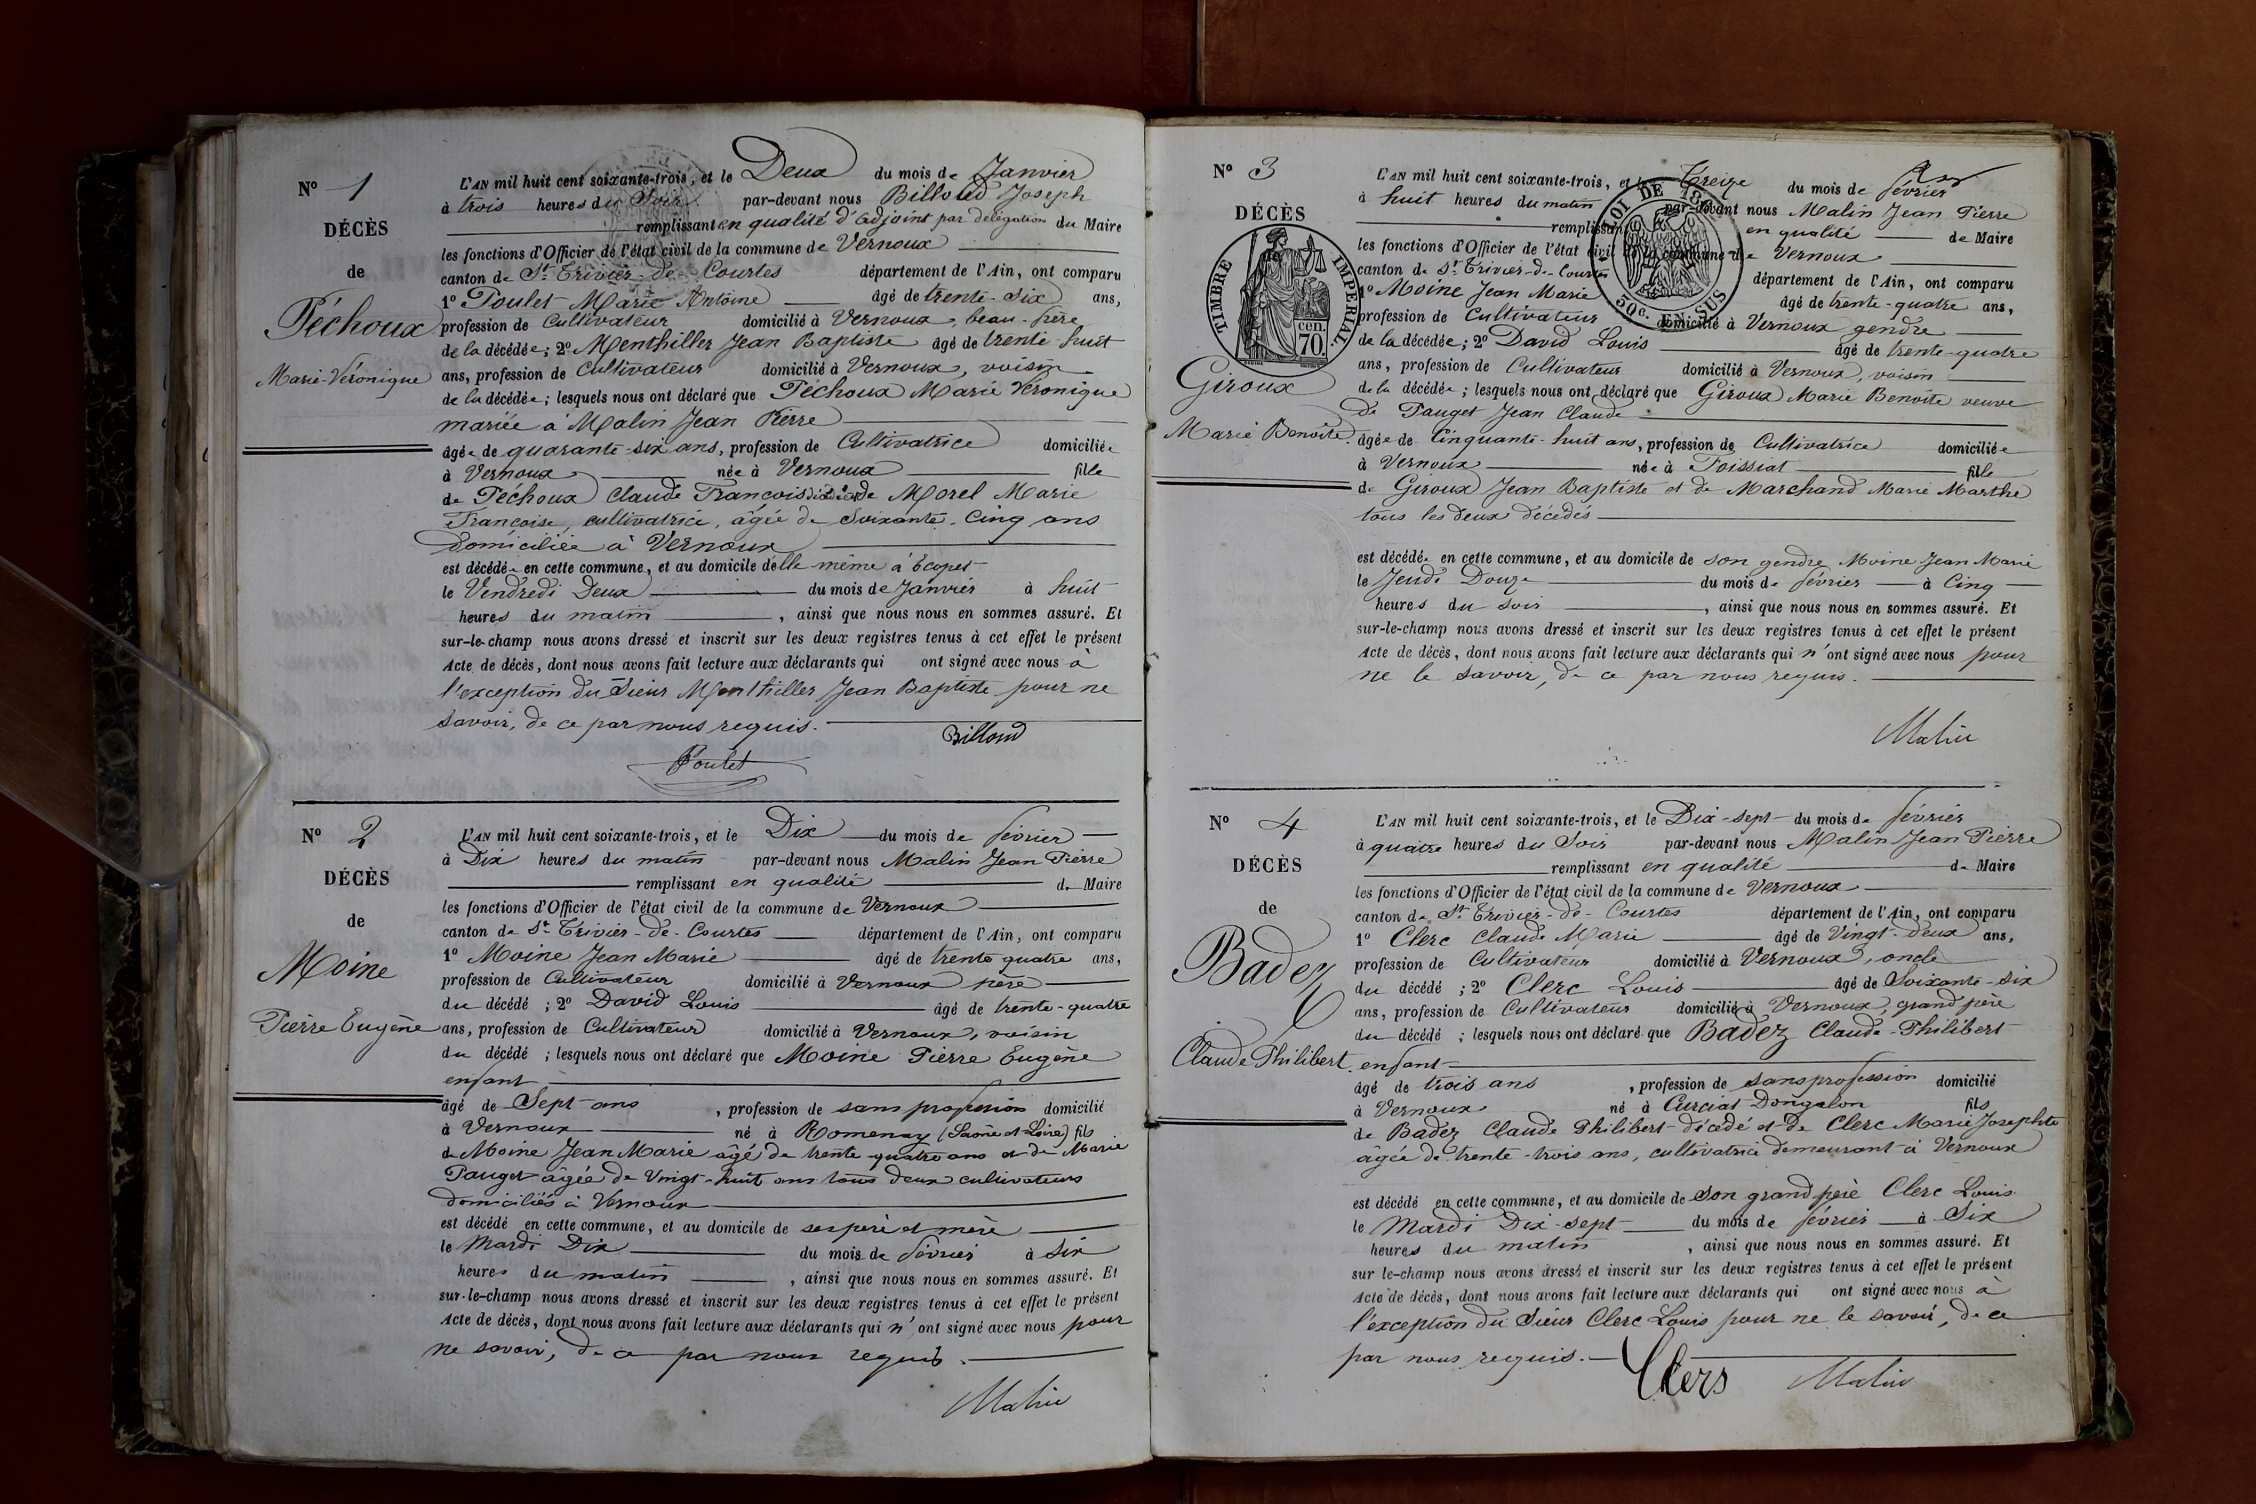 N° 1
DÉCÈS
de
Péchoux
Marie-Véronique
L'AN mil huit cent soixante-trois, et le Deux du mois de Janvier
à trois heures du Soir par-devant nous Billoud Joseph
remplissant en qualité d'adjoint par délégation du Maire
les fonctions d'Officier de l'état civil de la commune de Vernoux
canton de St Trivier-de-Courtes département de l'Ain, ont comparu
1° Poulet Marie Antoine âgé de trente-six ans,
profession de Cultivateur domicilié à Vernoux, beau-frère
de la décédée; 2° Menthiller Jean Baptiste âgé de trente huit
ans, profession de Cultivateur domicilié à Vernoux, voisin
de la décédée; lesquels nous ont déclaré que Péchoux Marie Véronique
mariée à Malin Jean Pierre
âgée de quarante-six ans, profession de Cultivatrice domiciliée
à Vernoux née à Vernoux fille
de Péchoux Claude François décédé et de Morel Marie
Françoise, cultivatrice, âgée de Soixante-Cinq ans
domiciliée à Vernoux
est décédée en cette commune, et au domicile d'elle même à Ecopet
le Vendredi Deux du mois de Janvier à huit
heures du matin, ainsi que nous nous en sommes assuré. Et
sur-le-champ nous avons dressé et inscrit sur les deux registres tenus à cet effet le présent
Acte de décès, dont nous avons fait lecture aux déclarants qui ont signé avec nous à
l'exception du Sieur Menthiller Jean Baptiste pour ne
savoir, de ce par nous requis.
Billoud
Poulet
N° 2
DÉCÈS
de
Moine
Pierre Eugène
L'AN mil huit cent soixante-trois, et le Dix du mois de février
à Dix heures du matin par-devant nous Malin Jean Pierre
remplissant en qualité de Maire
les fonctions d'Officier de l'état civil de la commune de Vernoux
canton de St Trivier-de-Courtes département de l'Ain, ont comparu
1° Moine Jean Marie âgé de trente quatre ans,
profession de Cultivateur domicilié à Vernoux père
du décédé ; 2° David Louis âgé de trente-quatre
ans, profession de Cultivateur domicilié à Vernoux, voisin
du décédé ; lesquels nous ont déclaré que Moine Pierre Eugène
enfant
âgé de Sept ans, profession de sans profession domicilié
à Vernoux né à Romenay (Saône et Loire) fils
de Moine Jean Marie âgé de trente-quatre ans et de Marie
Pauget âgée de Vingt-huit ans tous deux cultivateurs
domiciliés à Vernoux
est décédé en cette commune, et au domicile de ses père et mère
le Mardi Dix du mois de février à six
heures du matin, ainsi que nous nous en sommes assuré. Et
sur-le-champ nous avons dressé et inscrit sur les deux registres tenus à cet effet le présent
Acte de décès, dont nous avons fait lecture aux déclarants qui n'ont signé avec nous pour
ne savoir, de ce par nous requis.
Malin
N° 3
DÉCÈS
TIMBRE IMPERIAL
cen. 70.
Giroux
Marie Benoite.
LOI DE
50c. EN SUS
L'AN mil huit cent soixante-trois, et le Treize du mois de février
à huit heures du matin par-devant nous Malin Jean Pierre
remplissant en qualité de Maire
les fonctions d'Officier de l'état civil de la commune de Vernoux
canton de St Trivier-de-Courtes département de l'Ain, ont comparu
1° Moine Jean Marie âgé de trente-quatre ans,
profession de Cultivateur domicilié à Vernoux gendre
de la décédée; 2° David Louis âgé de trente-quatre
ans, profession de Cultivateur domicilié à Vernoux, voisin
de la décédée ; lesquels nous ont déclaré que Giroux Marie Benoite veuve
de Pauget Jean Claude
âgée de Cinquante-huit ans, profession de Cultivatrice domiciliée
à Vernoux née à Foissiat fille
de Giroux Jean Baptiste et de Marchand Marie Marthe
tous les deux décédés
est décédée en cette commune, et au domicile de son gendre Moine Jean Marie
le Jeudi Douze du mois de février à Cinq
heures du soir, ainsi que nous nous en sommes assuré. Et
sur-le-champ nous avons dressé et inscrit sur les deux registres tenus à cet effet le présent
Acte de décès, dont nous avons fait lecture aux déclarants qui n'ont signé avec nous pour
ne le savoir, de ce par nous requis.
Malin
N° 4
DÉCÈS
de
Badez
Claude Philibert.
L'AN mil huit cent soixante-trois, et le Dix-sept du mois de février
à quatre heures du Soir par-devant nous Malin Jean Pierre
remplissant en qualité de Maire
les fonctions d'Officier de l'état civil de la commune de Vernoux
canton de St Trivier-de-Courtes département de l'Ain, ont comparu
1° Clerc Claude Marie âgé de Vingt-deux ans,
profession de Cultivateur domicilié à Vernoux, oncle
du décédé ; 2° Clerc Louis âgé de Soixante-six
ans, profession de Cultivateur domicilié à Vernoux, grand père
du décédé ; lesquels nous ont déclaré que Badez Claude-Philibert
enfant
âgé de trois ans, profession de sans profession domicilié
à Vernoux né à Curciat Dongalon fils
de Badez Claude Philibert décédé et de Clerc Marie Josephte
âgée de trente-trois ans, cultivatrice demeurant à Vernoux
est décédé en cette commune, et au domicile de son grand père Clerc Louis
le Mardi Dix-sept du mois de février à Six
heures du matin, ainsi que nous nous en sommes assuré. Et
sur le-champ nous avons dressé et inscrit sur les deux registres tenus à cet effet le présent
Acte de décès, dont nous avons fait lecture aux déclarants qui ont signé avec nous à
l'exception du Sieur Clerc Louis pour ne le savoir, de ce
par nous requis.
Clers
Malin